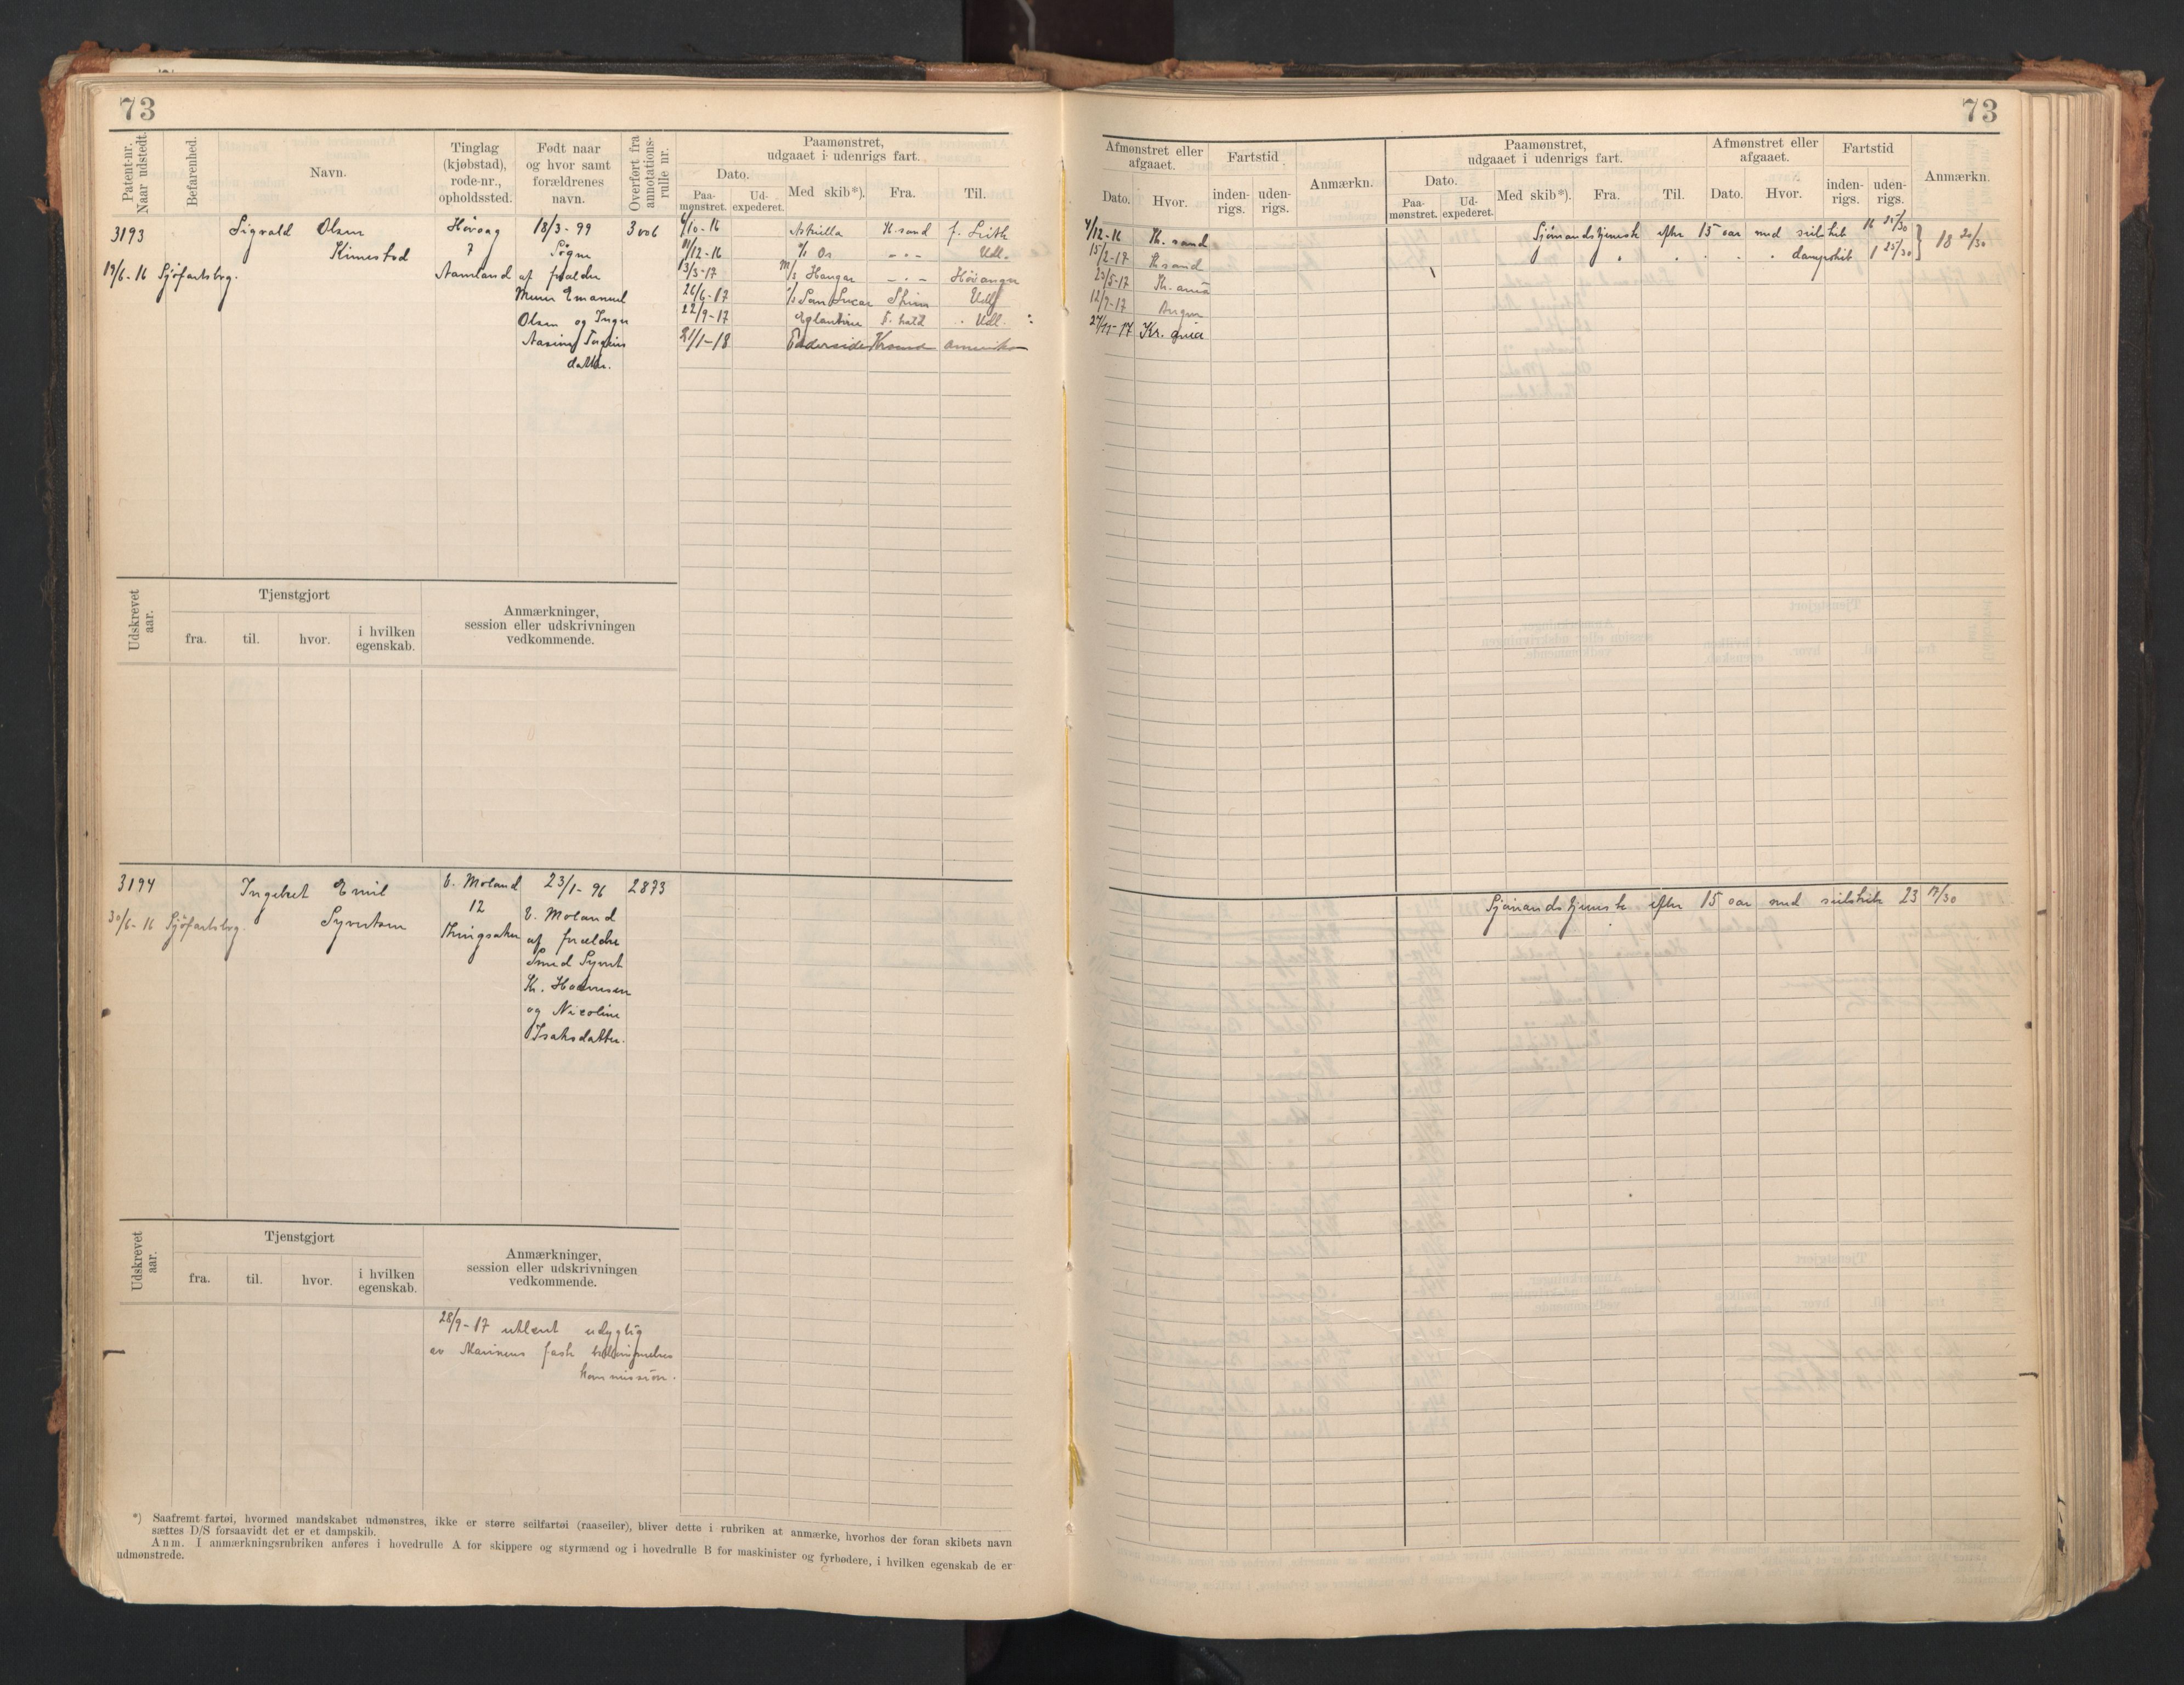 73
Patent-nr. Naar udstedt.
Befarenhed.
Navn.
Tinglag (kjøbstad), rode-nr., opholdssted.
Født naar og hvor samt forældrenes navn.
Overført fra annotations-rulle nr.
Paamønstret, udgaaet i udenrigs fart.
Dato.
Paa-mønstret.
Ud-expederet.
Med skib*).
Fra.
Til.
3193
19/6-16 Sjöfartsbog.
Sigvald Olsen
Kimestad
Høvaag
7
Aamland
18/3-99
Sögne
af forældre
Murer Emanuel
Olsen og Inger
Aasine
datter.
3006
6/10-16 K.sand f. Leith
11/12-16 Os - - - Udl.
13/3-17 M/S Hangar - - - Høyanger
26/6-17 San Lucar Skien Udl
22/9-17 Eglantine F. hald Udl.
21/1-18 Kr.sand Amerika
Udskrevet aar.
Tjenstgjort
fra.
til.
hvor.
i hvilken egenskab.
Anmærkninger,
session eller udskrivningen
vedkommende.
3194
30/6-16 Sjöfartsbog.
Ingebret Emil
Syvertsen
V. Moland
12
23/1-96
V. Moland
af forældre
Smed Syvert
Kr.
og Nicoline
Isaksdatter.
2873
Udskrevet aar.
Tjenstgjort
fra.
til.
hvor.
i hvilken egenskab.
Anmærkninger,
session eller udskrivningen
vedkommende.
28/9-17 utlært udygtig
av Marinens faste
kommission.
*) Saafremt fartøi, hvormed mandskabet udmønstres, ikke er større seilfartøi (raaseiler), bliver dette i rubriken at anmærke, hvorhos der foran skibets navn
sættes D/S forsaavidt det er et dampskib.
Anm. I anmærkningsrubriken anføres i hovedrulle A for skippere og styrmænd og i hovedrulle B for maskinister og fyrbødere, i hvilken egenskab de er
udmønstrede.
73
Afmønstret eller afgaaet.
Dato.
Hvor.
Fartstid
inden-rigs.
uden-rigs.
Anmærkn.
Paamønstret,
udgaaet i udenrigs fart.
Dato.
Paa-mønstret.
Ud-expederet.
Med skib*).
Fra.
Til.
Afmønstret eller afgaaet.
Dato.
Hvor.
Fartstid
inden-rigs.
uden-rigs.
Anmærkn.
4/12-16 Kr. sand
15/2-17 Kr sand
23/5-17 Kr. ania
12/9-17 Bergen
27/11-17 Kr. ania
Sjömandstjeneste efter 15 aar med seilskib 16 25/30
" . . . . dampskib 1 25/30 } 18 20/30
Sjömandstjeneste efter 15 aar med seilskib 23 17/30